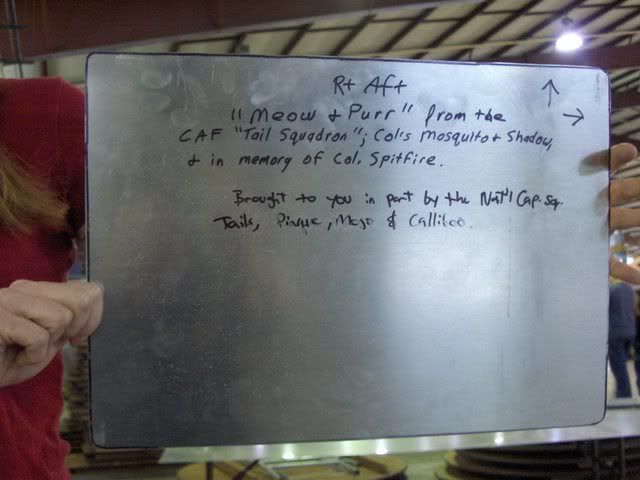 Rt Aft
"Meow & Purr" from the
CAF "Tail Squadron"; Col's Mosquito & Shadow,
& in memory of Col. Spitfire.
Brought to you in part by the Nat'l Cap. Sq.
Tails, Pinque, Mojo & Calliloo.